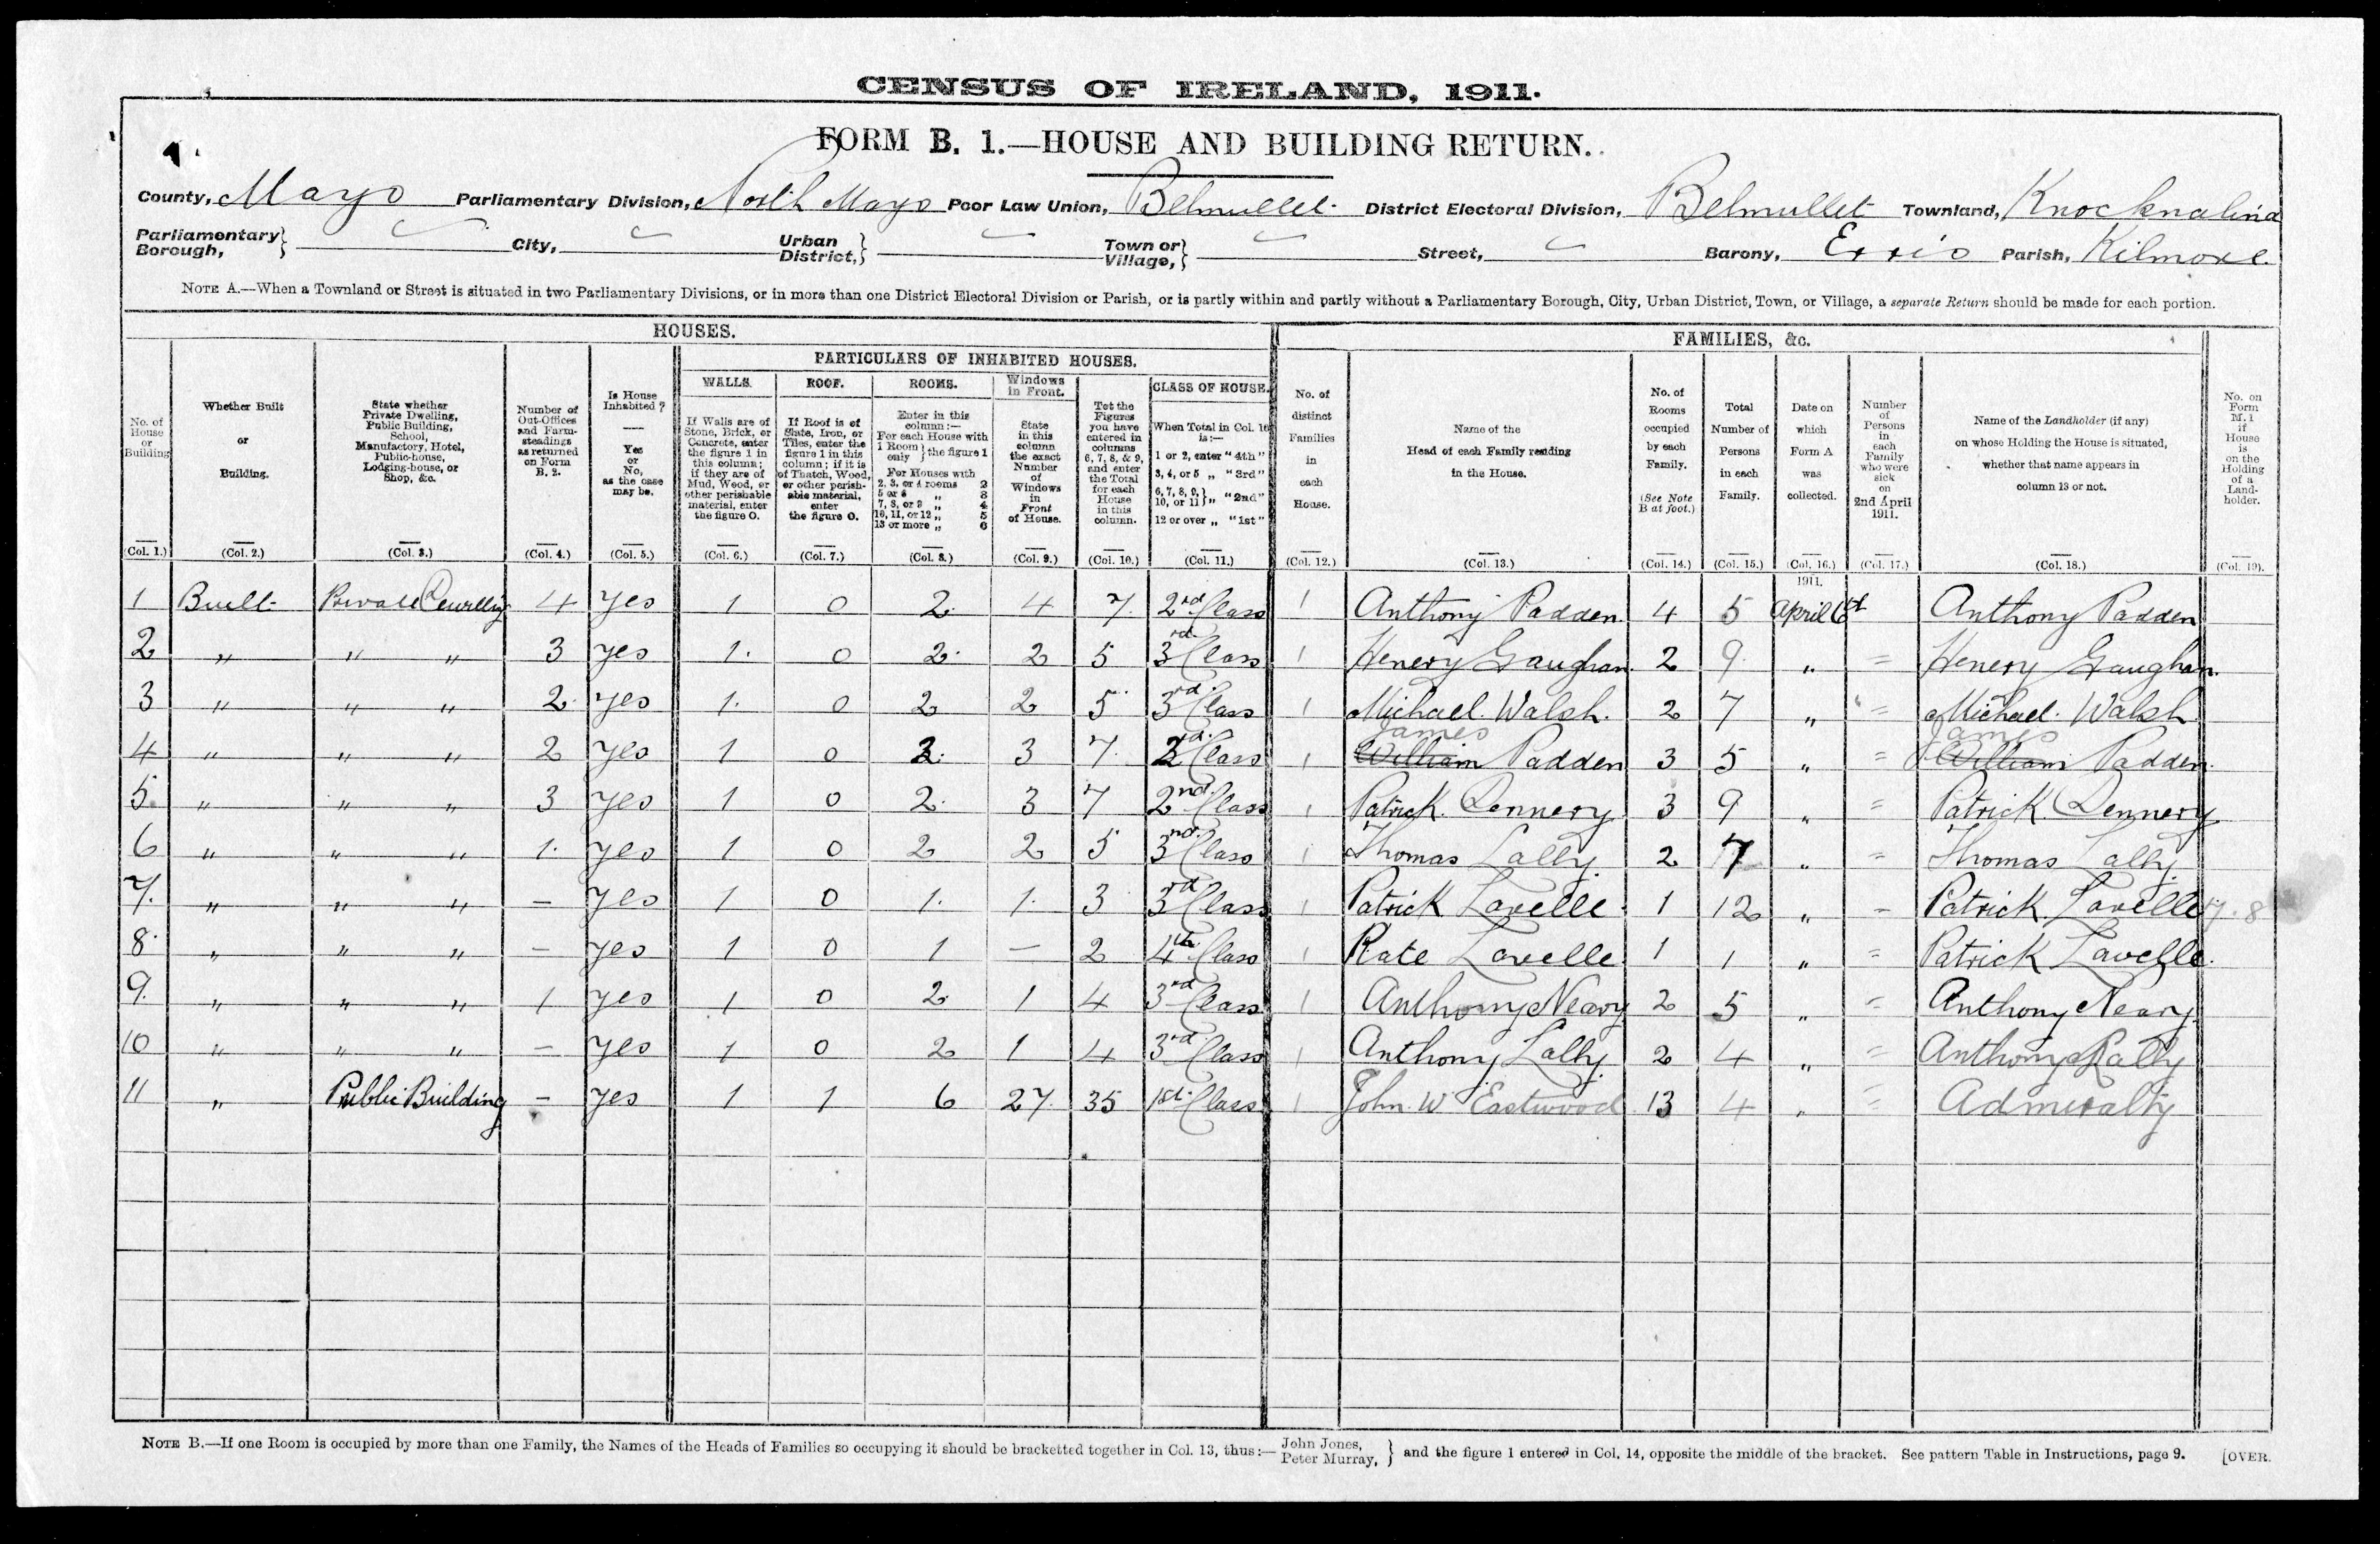 CENSUS OF IRELAND, 1911.
FORM B. 1.—HOUSE AND BUILDING RETURN.
County, Mayo Parliamentary Division, North Mayo Poor Law Union, Belmullet. District Electoral Division, Belmullet Townland, Knocknalina
Parliamentary Borough, City, Urban District, Town or Village, Street, Barony, Erris Parish, Kilmore.
NOTE A.—When a Townland or Street is situated in two Parliamentary Divisions, or in more than one District Electoral Division or Parish, or is partly within and partly without a Parliamentary Borough, City, Urban District, Town, or Village, a separate Return should be made for each portion.
HOUSES. FAMILIES, &c.
PARTICULARS OF INHABITED HOUSES.
WALLS. ROOF. ROOMS. Windows in Front. CLASS OF HOUSE.
No. of House or Building
Whether Built or Building.
State whether Private Dwelling, Public Building, School, Manufactory, Hotel, Public-house, Lodging-house, or Shop, &c.
Number of Out-Offices and Farm-steadings as returned on Form B. 2.
Is House Inhabited? Yes or No, as the case may be.
If Walls are of Stone, Brick, or Concrete, enter the figure 1 in this column; if they are of Mud, Wood, or other perishable material, enter the figure 0.
If Roof is of Slate, Iron, or Tiles, enter the figure 1 in this column; if it is of Thatch, Wood, or other perishable material, enter the figure 0.
Enter in this column:—
For each House with 1 Room only } the figure 1
For Houses with
2, 3, or 4 rooms 2
5 or 6 „ 3
7, 8, or 9 „ 4
10, 11, or 12 „ 5
13 or more „ 6
State in this column the exact Number of Windows in Front of House.
Tot the Figures you have entered in columns 6, 7, 8, & 9, and enter the Total for each House in this column.
When Total in Col. 10 is:—
1 or 2, enter "4th"
3, 4, or 5 „ "3rd"
6, 7, 8, 9, 10, or 11 } „ "2nd"
12 or over „ "1st"
No. of distinct Families in each House.
Name of the Head of each Family residing in the House.
No. of Rooms occupied by each Family. (See Note B at foot.)
Total Number of Persons in each Family.
Date on which Form A was collected.
Number of Persons in each Family who were sick on 2nd April 1911.
Name of the Landholder (if any) on whose Holding the House is situated, whether that name appears in column 13 or not.
No. on Form M. 1 if House is on the Holding of a Landholder.
(Col. 1.) (Col. 2.) (Col. 3.) (Col. 4.) (Col. 5.) (Col. 6.) (Col. 7.) (Col. 8.) (Col. 9.) (Col. 10.) (Col. 11.) (Col. 12.) (Col. 13.) (Col. 14.) (Col. 15.) (Col. 16.) (Col. 17.) (Col. 18.) (Col. 19).
1911.
1 Built Private Dwelling 4 yes 1 0 2 4 7 2nd Class 1 Anthony Padden 4 5 April 6th Anthony Padden
2 " " " 3 yes 1 0 2 2 5 3rd Class 1 Henery Gaughan 2 9 " = Henery Gaughan
3 " " " 2 yes 1 0 2 2 5 3rd Class 1 Michael Walsh 2 7 " = Michael Walsh
James James
4 " " " 2 yes 1 0 2 3 7 2 Class 1 William Padden 3 5 " = William Padden
5 " " " 3 yes 1 0 2 3 7 2nd Class 1 Patrick Dennery 3 9 " = Patrick Dennery
6 " " " 1 yes 1 0 2 2 5 3rd Class 1 Thomas Lally 2 7 " = Thomas Lally
7 " " " – yes 1 0 1 1 3 3rd Class 1 Patrick Lavelle 1 12 " – Patrick Lavelle 7.8
8 " " " – yes 1 0 1 – 2 4th Class 1 Kate Lavelle 1 1 " = Patrick Lavelle
9 " " " 1 yes 1 0 2 1 4 3rd Class 1 Anthony Neary 2 5 " = Anthony Neary
10 " " " – yes 1 0 2 1 4 3rd Class 1 Anthony Lally 2 4 " = Anthony Lally
11 " Public Building – yes 1 1 6 27 35 1st Class 1 John W Eastwood 13 4 " = Admiralty
NOTE B.—If one Room is occupied by more than one Family, the Names of the Heads of Families so occupying it should be bracketted together in Col. 13, thus:— John Jones, Peter Murray, } and the figure 1 entered in Col. 14, opposite the middle of the bracket. See pattern Table in Instructions, page 9. [OVER.